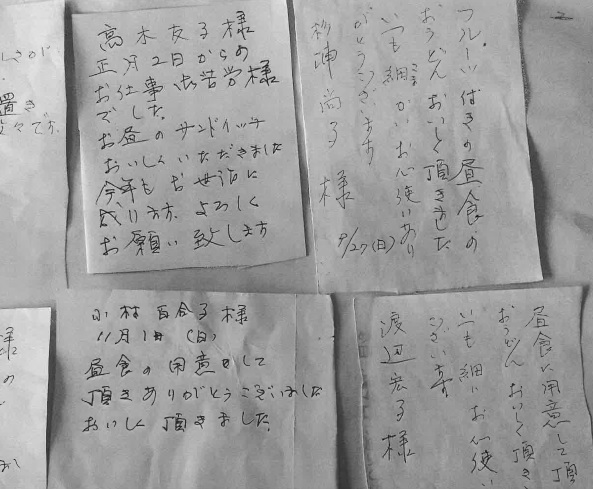 しさが
置き
々です
高木友子様
正月2日からの
お仕事御苦労様
でした。
お昼のサンドイッチ
おいしくいただきました
今年もお世話に
成ります。よろしく
お願い致します
フルーツ付きの昼食の
おうどんおいしく頂きました
いつも細かいお心使いあり
がとうございます
尚子様
9/27(日)
様
の
小林百合子様
11月1日(日)
昼食の用意をして
頂きありがとうございました
おいしく頂きました。
昼食に用意して頂
おうどんおいしく頂き
いつも細いお心使い
ございます
渡辺宏子様